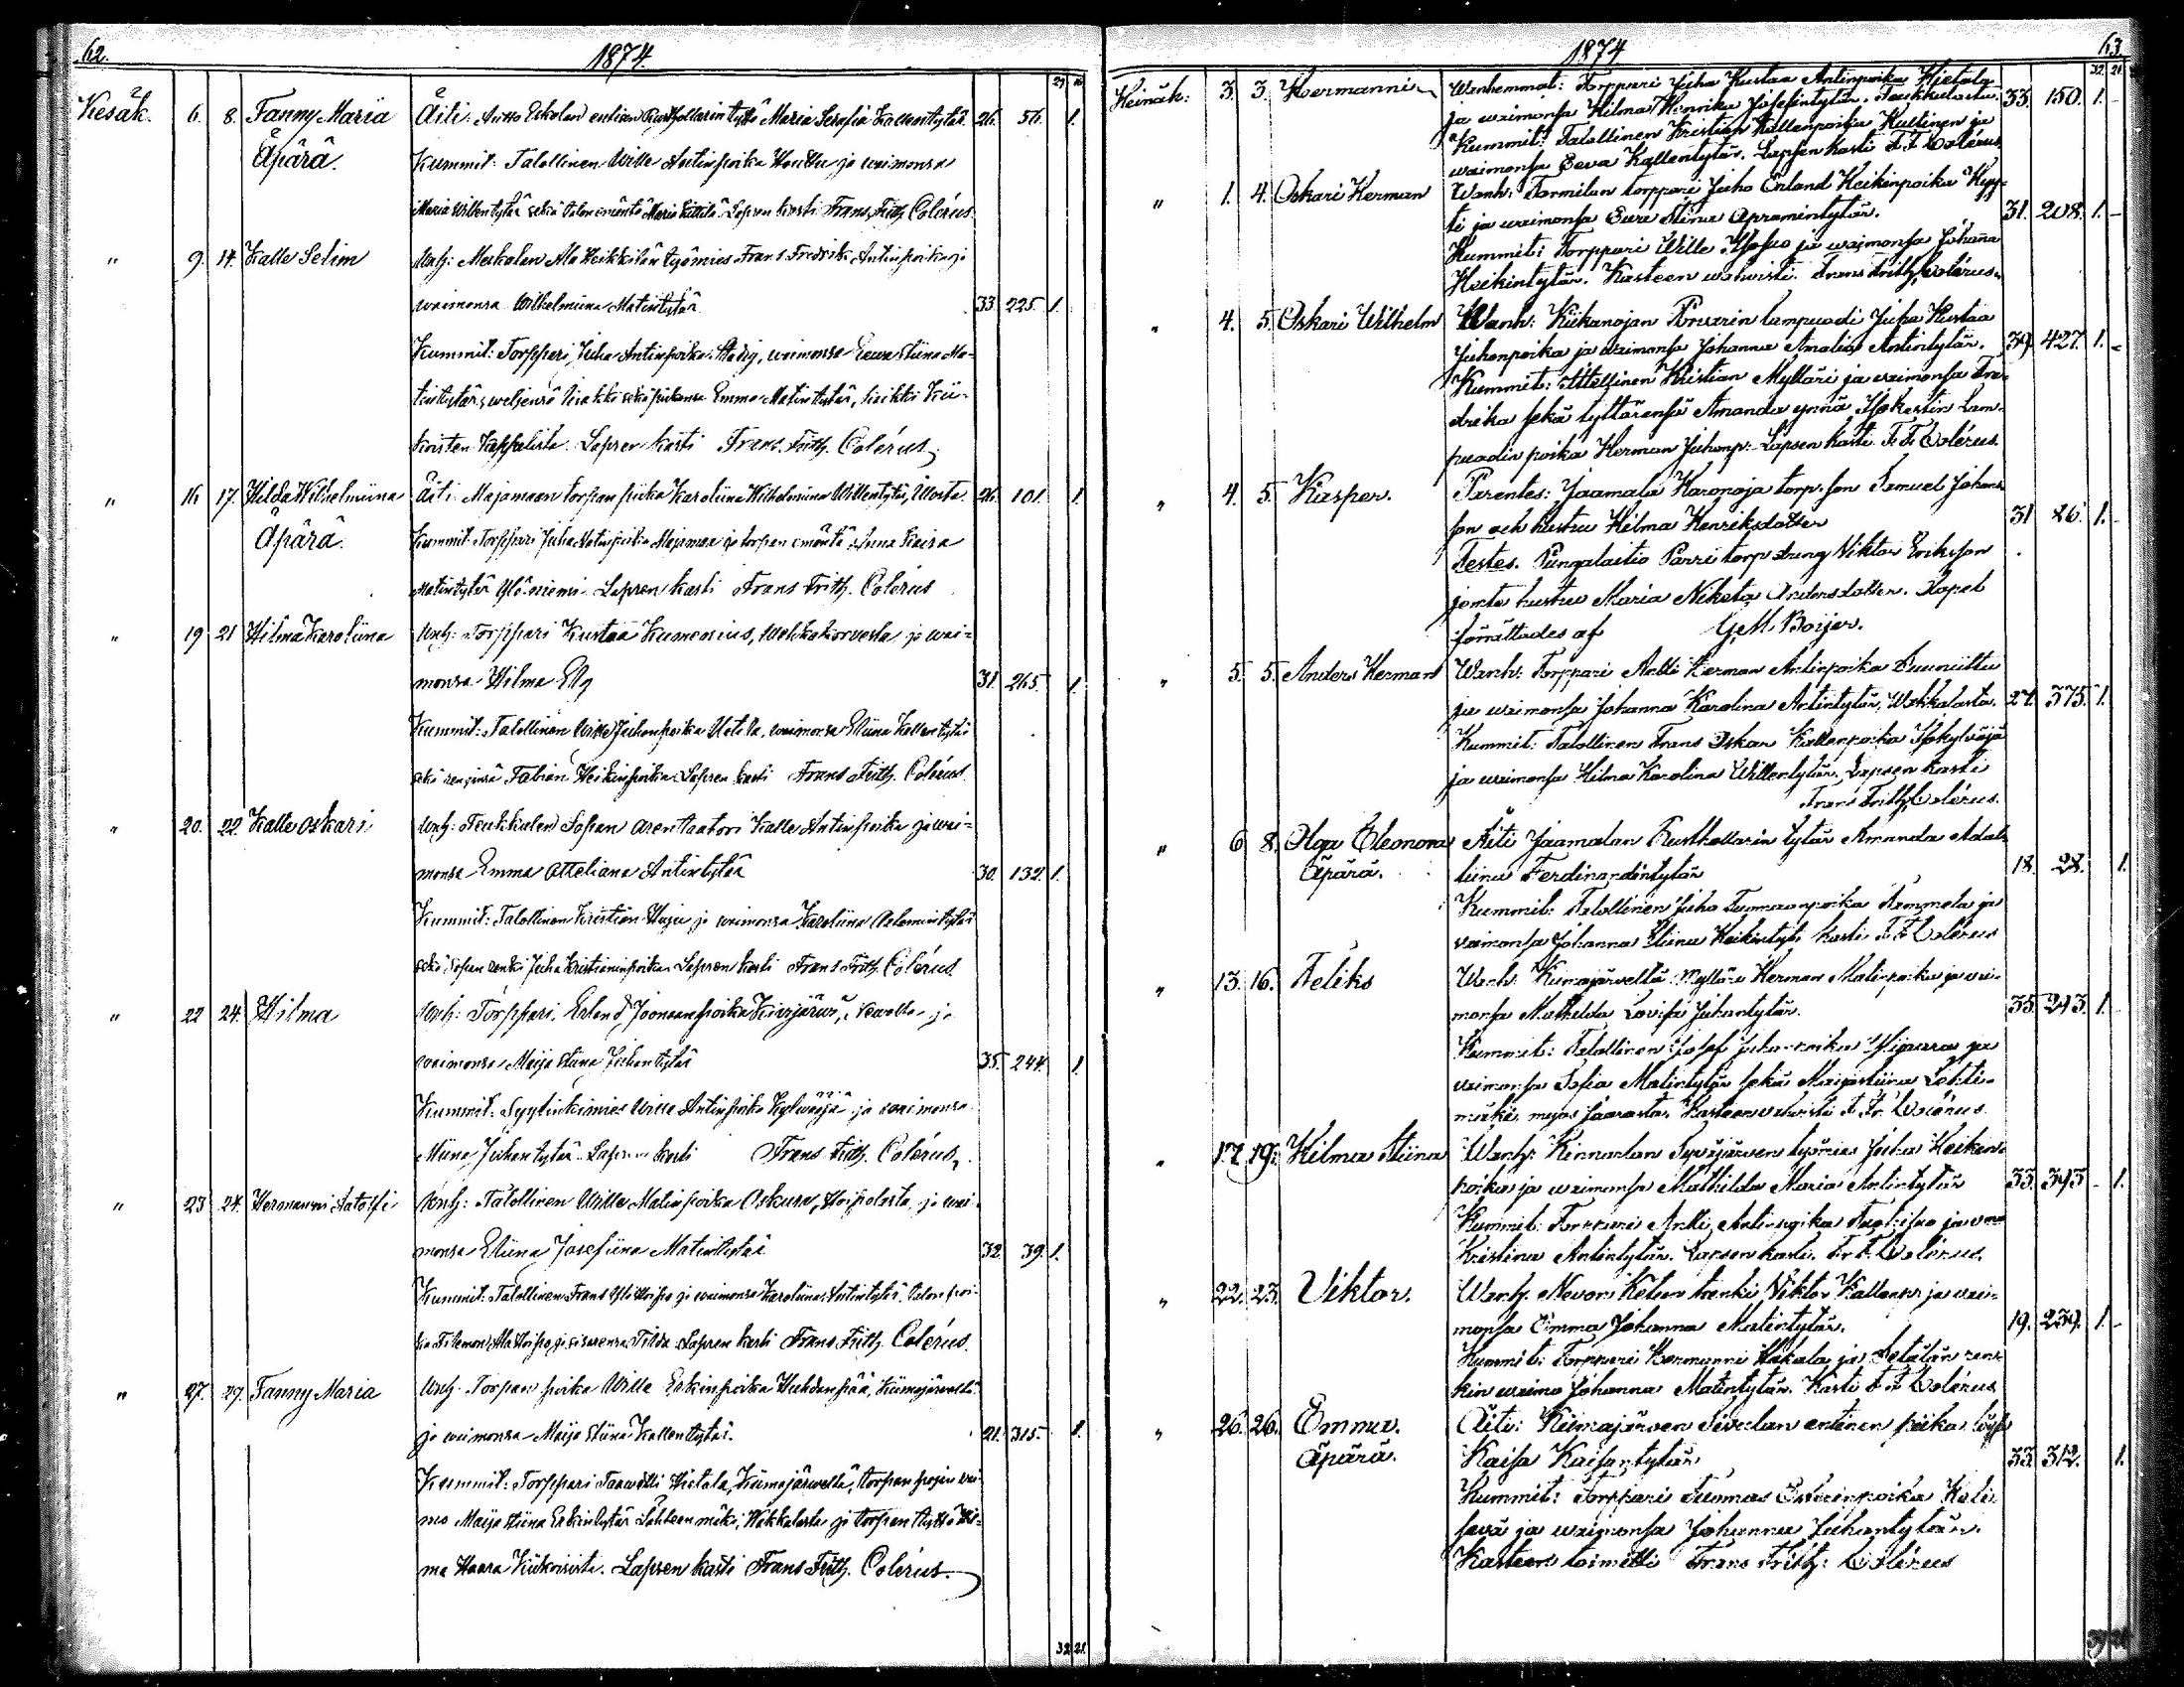 62. 1874.
29 16
Kesäk. 6. 8. Fanny Maria Äiti: Antto Eskolan entisen Rusthollarin tyttö Maria Serafia Kallentytär 26. 56. 1.
Äpärä. Kummit: Talollinen Wille Antinpoika ja waimonsa
Maria Willentytär sekä talon emäntä Maria Lapsen kasti Frans Frith. Colérus
" 9. 14. Kalle Selim Wanh: Meskalan Ala Heikkilän työmies Frans Fredrik Antinpoika ja
waimonsa Wilhelmiina Matintytär 33. 225. 1.
Kummit: Torppari Juha Antinpoika Stadig, waimonsa Eewa Stiina Ma-
tintytär, weljensä Emma Matintytär, Heikki
Lapsen kasti Frans Frith. Colérus.
" 16 17. Hilda Wilhelmiina Äiti Majamaan torpan piika Karoliina Wilhelmiina Willentytär, 26. 101. 1.
Äpärä. Kummit Torppari Juha Matinpoika Majamaa ja torpan emäntä Anna Kaisa
Matintytär Ylöniemi. Lapsen kasti Frans Frith. Colérus
" 19 21 Hilma Karoliina Wanh: Torppari Kustaa Kumenius, ja wai-
monsa Hilma Elg 31. 265. 1.
Kummit: Talollinen Wille Juhonpoika Uotila, waimonsa Eliina Kallentytär
sekä renginsä Fabian Heikinpoika. Lapsen kasti Frans Frith. Colérus.
" 20. 22 Kalle Oskari Wanh: Teukkulan Sopan arentaatori Kalle Antinpoika ja wai-
monsa Emma Atteliana Antintytär 30. 132. 1.
Kummit: Talollinen Kristian ja waimonsa Karoliina
sekä Sopan renki Juha Kristianinpoika Lapsen kasti Frans Frith. Colérus
" 22 24. Hilma Wanh: Torppari Erland Joonaanpoika Kivijärvi, ja
waimonsa Maija Stiina Juhontytär 35. 244. 1.
Kummit: Syytinkimies Wille Antinpoika Kylwäjä ja waimonsa
Miina Juhontytär. Lapsen kasti Frans Frith. Colérus.
" 23 24. Hermanni Aatolfi Wanh: Talollinen Wille Matinpoika Oskura, ja wai-
monsa Eliina Josefiina Matintytär 32. 39. 1.
Kummit: Talollinen Frans ja waimonsa Karoliina Antintytär, talon poi-
ka Filemon ja sisarensa Tilda. Lapsen kasti Frans Frith. Colérus.
" 27. 29. Fanny Maria Wanh. Torpan poika Wille Erkinpoika Huhdanpää, Kiimajärweltä
ja waimonsa Maija Stiina Kallentytär. 21. 315. 1.
Kummit: Torppari Taawetti Hietala, Kiimajärweltä, torpan pojan wai-
mo Maija Stiina Erkintytär Lähteenmäki, Wakkalasta ja torpan tyttö Wi-
ma Haara Kiikoisista. Lapsen kasti Frans Frith. Colérus.
32 21.
1874 63.
32. 21.
Heinäk: 3. 3. Hermanni Wanhemmat: Torppari Juha Kustaa Antinpoika Hietala
ja waimonsa Hilma Henrika Josefintytär. Teukkulasta. 33. 150. 1. -
Kummit: Talollinen Kristian Kallenpoika Kultinen ja
waimonsa Eeva Kallentytär. Lapsen kasti F. F. Colérus
" 1. 4. Oskari Herman Wanh: Tormilan torppari Juho Erland Heikinpoika Kyp-
ti ja waimonsa Eeva Stina Apramintytär. 31. 208. 1. -
Kummit: Torppari Wille Isosuo ja waimonsa Johanna
Heikintytär. Kasteen wahwisti. Frans Frith. Colérus.
" 4. 5. Oskari Wilhelm Wanh: Kiikanojan Prusin lampuodi Juha Kustaa
Juhonpoika ja waimonsa Johanna Amalia Antintytär. 39. 427. 1. -
Kummit: Itsellinen Kristian Myllari ja waimonsa Fre-
drika sekä tyttärensä Amanda ynnä Isokestin Lam-
puodin poika Herman Juhonp. Lapsen kasti F. F. Colérus.
" 4. 5. Kasper. Parentes: Jaamala Karonoja torp. son Samuel Johans-
son och hustru Hilma Henriksdotter 31 86. 1. -
Testes. Pungalaitio Parri torp dreng Viktor Eriksson
jemte hustru Maria Niketa Andersdotter. Dopet
förrättades af G. M. Boijer.
" 5. 5. Anders Herman Wanh: Torppari Antti Herman Antinpoika Suuniittu
ja waimonsa Johanna Karolina Antintytär, Wakkalasta. 27. 375. 1.
Kummit: Talollinen Frans Oskar Kallenpoika Isokylväjä
ja waimonsa Hilma Karolina Willentytär, Lapsen kasti
Frans Frith. Colérus.
" 6 8. Olga Eleonora Äiti Jaamalan Rusthollarin tytär Amanda Adal-
Äpärä. tiina Ferdinandintytär 18. 28. 1.
Kummit: Talollinen Juho Tuomaanpoika Rammela ja
vaimonsa Johanna Stiina Heikintyt. kasti F. F. Colérus
" 13. 16. Feliks Wanh. Kiimajärveltä Mylläri Herman Matinpoika ja vai-
monsa Mathilda Lovisa Juhontytär. 35. 243. 1.
Kummit: Talollinen Josef Juhanpoika ja
vaimonsa Sofia Matintytär sekä Maijastiina Lähti-
mäki, Kasteen vahvisti F. Fr. Colérus.
" 17. 19. Hilma Stiina Wanh. Kinnarlan Syväjärven työmies Juha Heikin-
poika ja waimonsa Mathilda Maria Antintytär 33. 343 - 1.
Kummit: Torppari Antti Antinpoika ja vmo
Kristina Antintytär. Lapsen kasti. Fr. F. Colérus.
" 22. 23. Viktor. Wanh. Nevon Ketun trenki Viktor Kallenp. ja vai-
monsa Emma Johanna Matintytär. 19. 239. 1. -
Kummit: Torppari Hermanni Hakala ja Setälän ren-
kin waimo Johanna Matintytär. Kasti F. F. Colérus
" 26. 26. Emma. Äiti: Kiimajärven Sivulan entinen piika
Äpärä. Kaisa Kaisantytär 33. 312. 1.
Kummit: Torppari Tuomas Eskinpoika
ja waimonsa Johanna Juhantytär.
Kasteen toimitti Frans Frith: Colérus
39 26